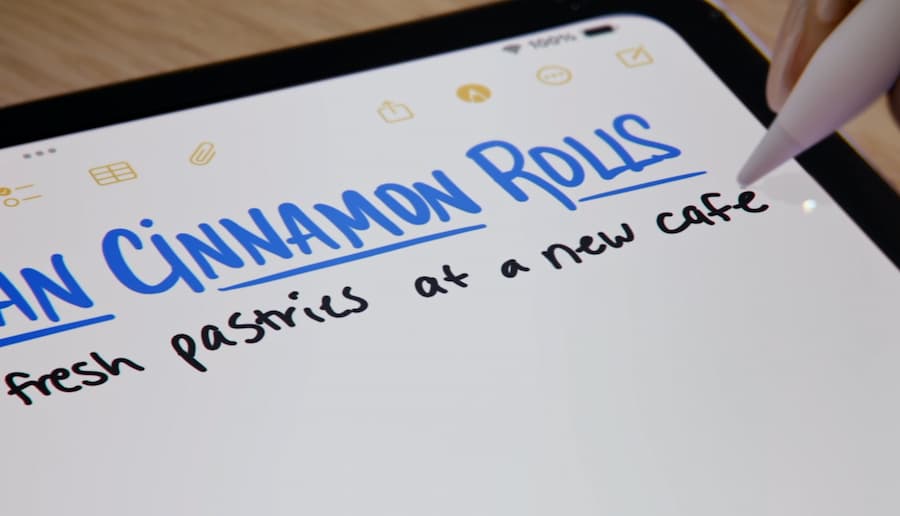 100%
AN CiNNAMON ROLLS
fresh pastries at a new cafe